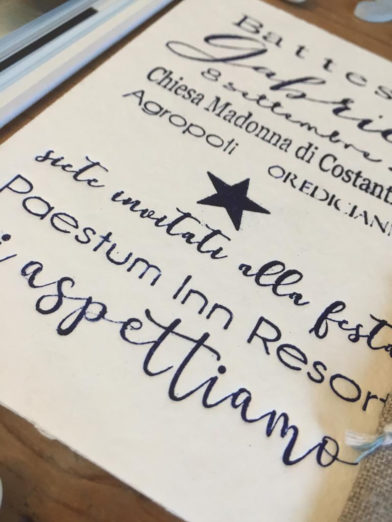 Battes
Gabri
8 settembre
Chiesa Madonna di Costant
Agropoli
siete invitati alla festa
Paestum Inn Resort
i aspettiamo